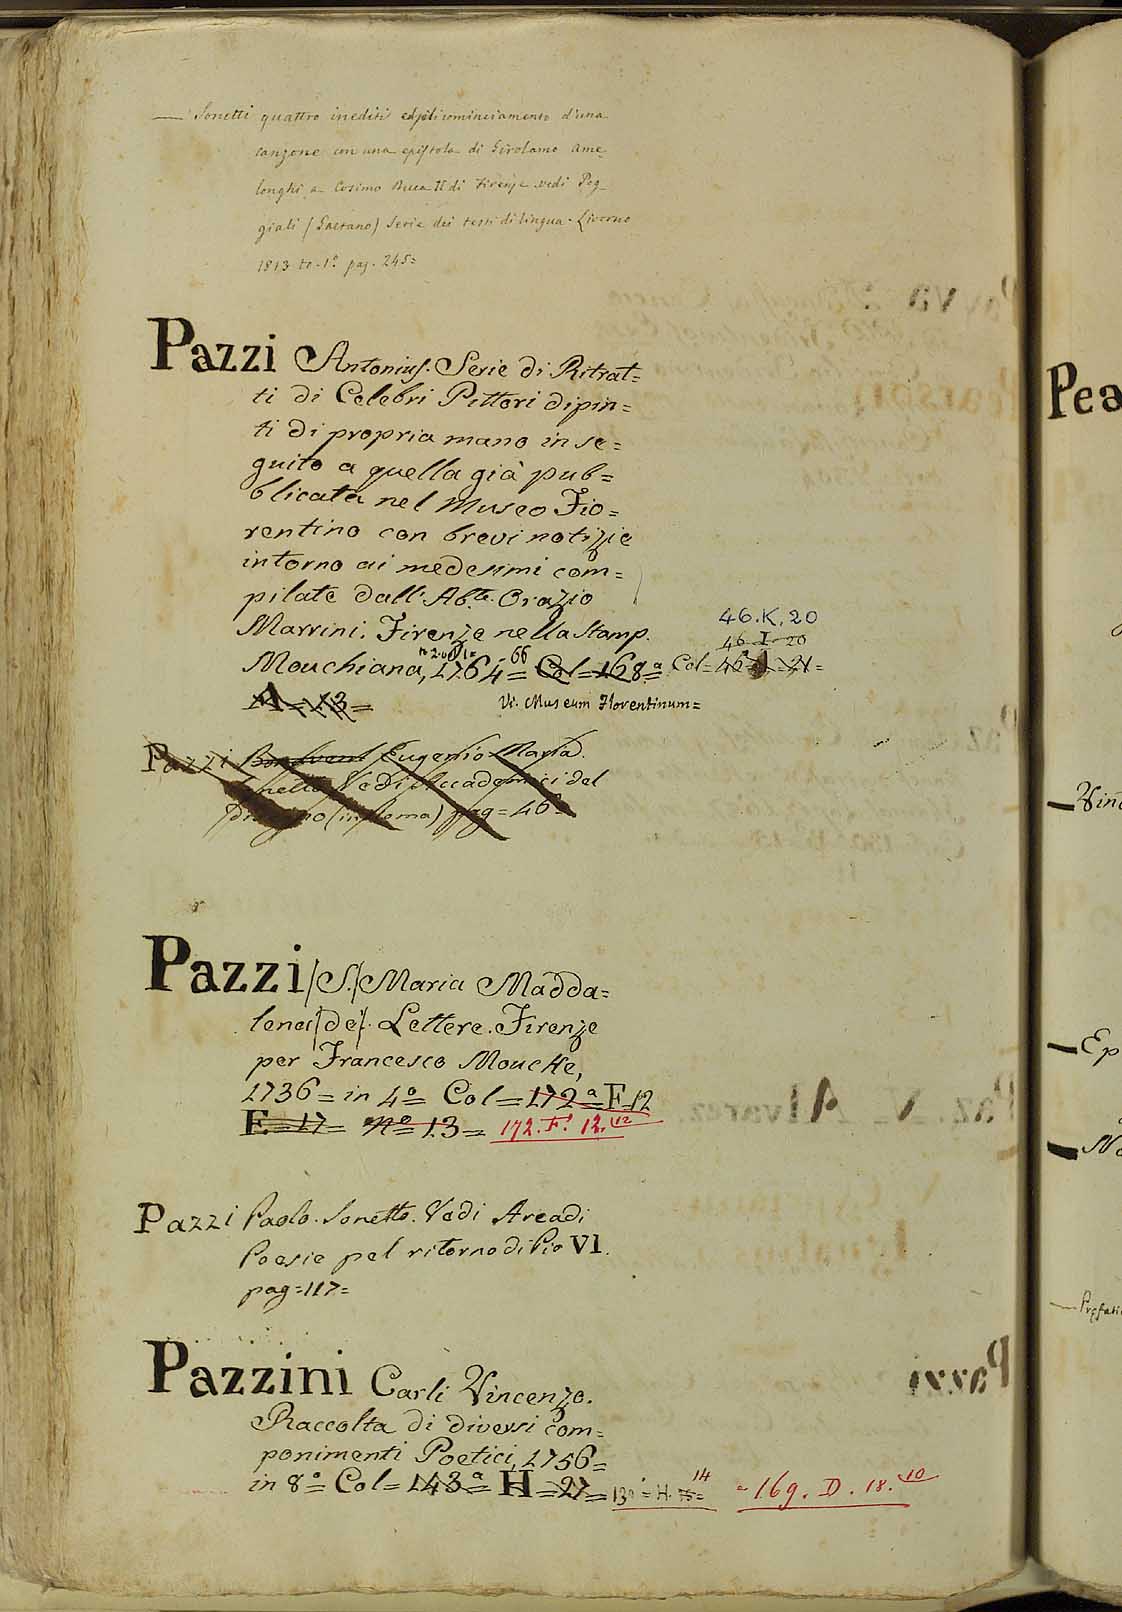 — Sonetti quattro inediti ed il cominciamento d'una
canzone con una epistola di Girolamo Ame-
longhi a Cosimo Duca II di Firenze vedi Pog-
giali (Gaetano) Serie dei testi di lingua. Livorno
1813 to. 1º pag. 245=
Pazzi Antonius. Serie di Ritrat=
ti di Celebri Pittori dipin=
ti di propria mano in se=
guito a quella già pub=
blicata nel Museo Fio=
rentino con brevi notizie
intorno ai medesimi com=
pilate dall'Abte. Orazio
Marrini. Firenze nella Stamp.
46.K.20
46 I 20
Mouchiana, 1764=66 Col=168ª Col=46 21=
A=13=
Vi. Museum Florentinum=
Pazzi Eugenio Maria.
Vedi Accademici del
(in Roma) pag=46=
Pazzi /S./ Maria Madda=
lena /de/. Lettere. Firenze
per Francesco Mouche,
1736= in 4º Col=172ª=F 12
E=17= nº 13= 172. F. 12. 12
Pazzi Paolo. Sonetto. Vedi Arcadi
Poesie pel ritorno di Pio VI.
pag=117=
Pazzini Carli Vincenzo.
Raccolta di diversi com=
ponimenti Poetici, 1756=
in 8º= Col=143ª= H=27= 13 = H. 14
= 169. D. 18. 10
Pea
Ep